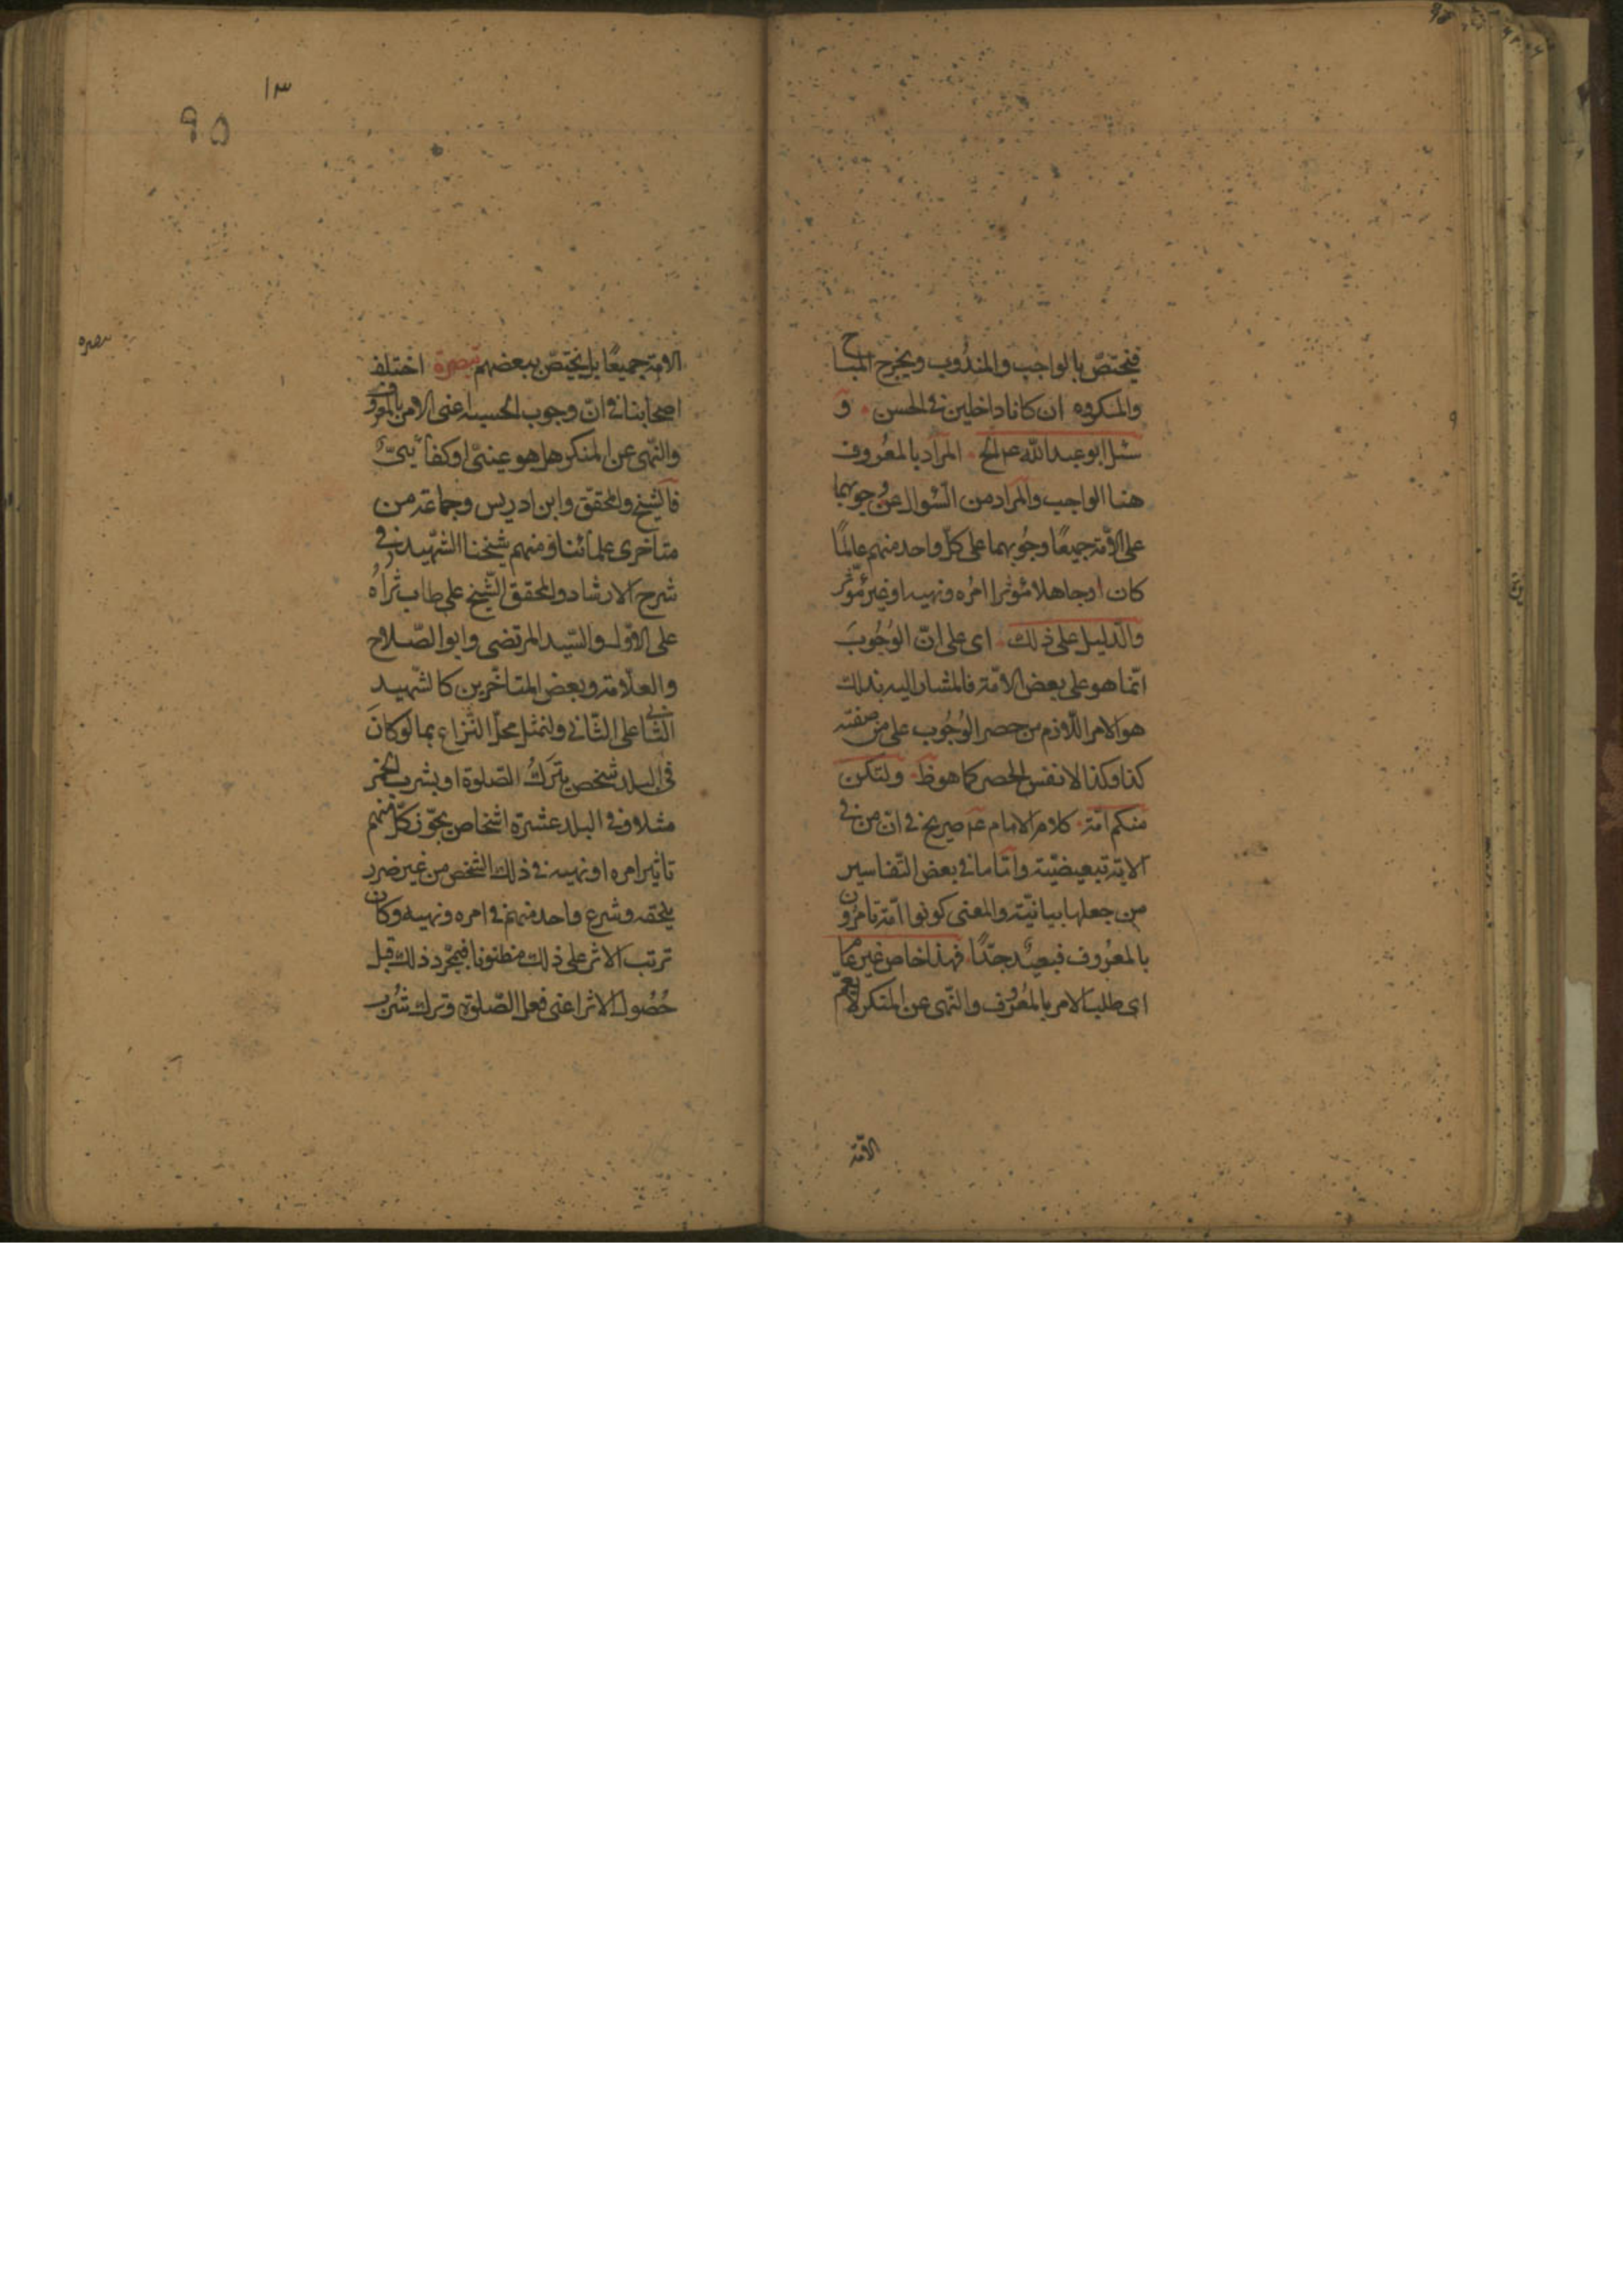 فيختصّ بالواجب والمندُوب ويخرج المباح
والمكروه ان كانا داخلين فى الحسن و
سئل ابو عبد الله عم الخ المراد بالمعرُوف
هنا الواجب والمراد من السّؤال عن وجوبهما
على الامّة جميعًا وجُوبهما على كلّ واحد منهم عالمًا
كان او جاهلا مؤثرا امرُه ونهيه او غير مؤثر
والدّليل على ذلك اى على انّ الوُجُوبَ
انّما هو على بعض الامّة فالمشار اليه بذلك
هو الامر اللّازم من حصر الوُجُوب على من صفته
كذا وكذا لا نفس الحصر كما هو ظ ولتكن
منكم امّة كلام الامام عم صريح فى انّ من فى
الاية تبعيضيّة وامّا ما فى بعض التّفاسير
من جعلها بيانيّة والمعنى كونوا امّة تامرُون
بالمعرُوف فبعيدٌ جدًّا فهذا خاص غير عام
اى طلب الامر بالمعرُوف والنّهى عن المنكر لا يعمّ
الامّة
١٣
95
الامّة جميعًا بل يختصّ ببعضهم تبصرة اختلف
اصحابنا فى انّ وجوب الحسبة اعنى الامر بالمعروف
والنّهى عن المنكر هل هو عينىّ او كفائىّ
فالشيخ والمحقّق وابن ادريس وجماعة من
متاخرى علمائنا ومنهم شيخنا الشّهيد فى
شرح الارشاد والمحقق الشّيخ على طاب ثراه
على الاوّل والسّيد المرتضى وابو الصّلاح
والعلّامة وبعض المتاخّرين كالشّهيد
الثّانى على الثّانى ولنمثل محلّ النّزاع بما لو كانَ
فى البلد شخص يتركُ الصّلوة او يشرب الخمر
مثلا وفى البلد عشرة اشخاص يجوّز كلّ منهم
تاثير امره او نهيه فى ذلك الشخص من غير ضرر
يلحقه وشرع واحد منهم فى امره ونهيه وكان
ترتب الاثر على ذلك مظنونا فبمجّرد ذلك قبل
حُصُول الاثر اعنى فعل الصّلوة وترك شُرب
تبصره